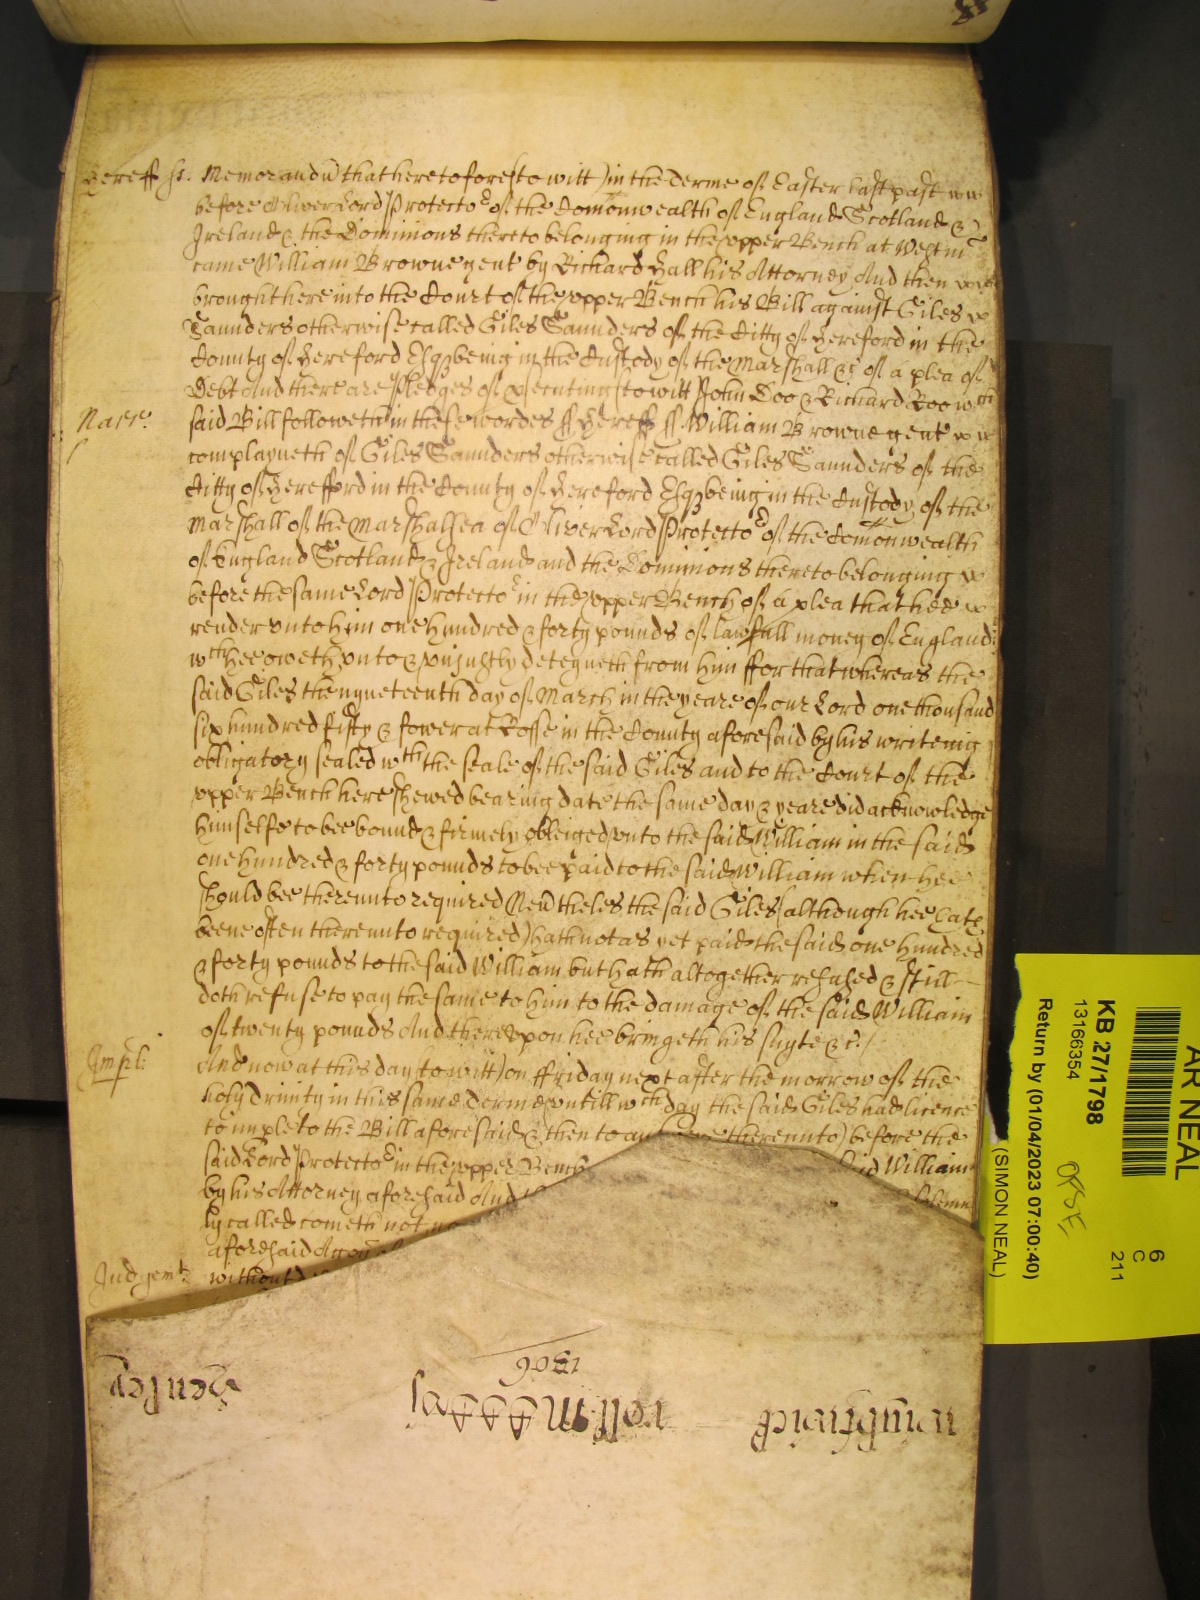 Hereff ss. Memorandū that heretofore (to witt) in the Terme of Easter last past
before Oliver Lord Protector of the Comonwealth of England Scotland &
Ireland & the Dominions thereto belonging in the upper Bench at Westm
came William Browne gent by Richard Hall his Attorney And then
brought here into the Court of the upper Bench his Bill against Giles
Saunders otherwise called Giles Saunders of the Citty of Hereford in the
County of Hereford Esqz being in the Custody of the Marshall &c of a plea of
Debt And there are Pledges of prosecuting (to witt) John Doo & Richard Roo wch
Narr:
said Bill followeth in these wordes ss Hereff ss William Browne gent
complayneth of Giles Saunders otherwise called Giles Saunders of the
Citty of Herefford in the County of Hereford Esqz being in the Custody of the
Marshall of the Marshalsea of Oliver Lord Protector of the Comonwealth
of England Scotland & Ireland and the Dominions thereto belonging
before the same Lord Protector in the upper Bench of a plea that hee
render unto him one hundred & forty pounds of lawfull money of England
wch hee oweth unto & unjustly deteyneth from him ffor that whereas the
said Giles the nyneteenth day of March in the yeare of our Lord one thousand
six hundred fifty & fower at Rosse in the County aforesaid by his writeing
obligatory sealed wth the seale of the said Giles and to the Court of the
upper Bench here shewed bearing date the same day & yeare did acknowledge
himselfe to bee bound & firmely obleiged unto the said William in the said
one hundred & forty pounds to bee paid to the said William when hee
should bee thereunto required Nev̄theles the said Giles (although hee hath
beene often thereunto required) hath not as yet paid the said one hundred
& forty pounds to the said William but hath altogether refused & still
doth refuse to pay the same to him to the damage of the said William
of twenty pounds And thereupon hee bringeth his suyte &c.
Impl:
And now at this day (to witt) on ffriday next after the morrow of the
holy Trinity in this same Terme untill wch day the said Giles had licence
to imple to the Bill aforesaid & then to thereunto) before the
said Lord Protector in the upper Bench said William
by his Attorney aforesaid And solemn
ly called cometh not
aforesaid
Judgemt
without
Henley
roll
1306
Warwick
AR NEAL
KB 27/1798
13166354
Return by (01/04/2023 07:00:40)
(SIMON NEAL)
6
C
211